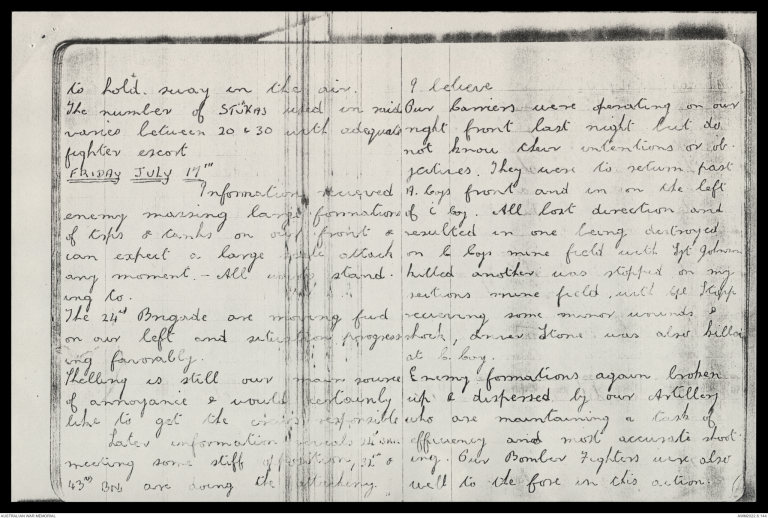 to hold sway in the air.
The number of STUKAS used in raid
varies between 20 & 30 with adequate
fighter escort
FRIDAY JULY 17TH
Information received
enemy massing large formations
of tnps & tanks on our front &
can expect a large scale attack
any moment. - All stand-
ing to.
The 24th Brigade are moving fwd
on our left and situation progress
ing favorably.
Shelling is still our main source
of annoyance & would certainly
like to get the responsible
Later information reveals 24
meeting some stiff opposition, 32nd &
43rd Bns are doing the attacking.
I believe
Our Carriers were operating on our
right front last night but do
not know their intentions or ob-
jectives. They were to return past
A Coys front and in on the left
of C Coy. All lost direction and
resulted in one being destroyed
on C Coys mine field with Sgt
killed another was stopped on my
sections mine field, with Cpl
receiving some minor wounds &
shock, driver Stone was also killed
at C Coy.
Enemy formations again broken
up & dispersed by our Artillery
who are maintaining a task of
efficiency and most accurate shoot-
ing. Our Bomber Fighters were also
well to the fore in this action.
AUSTRALIAN WAR MEMORIAL